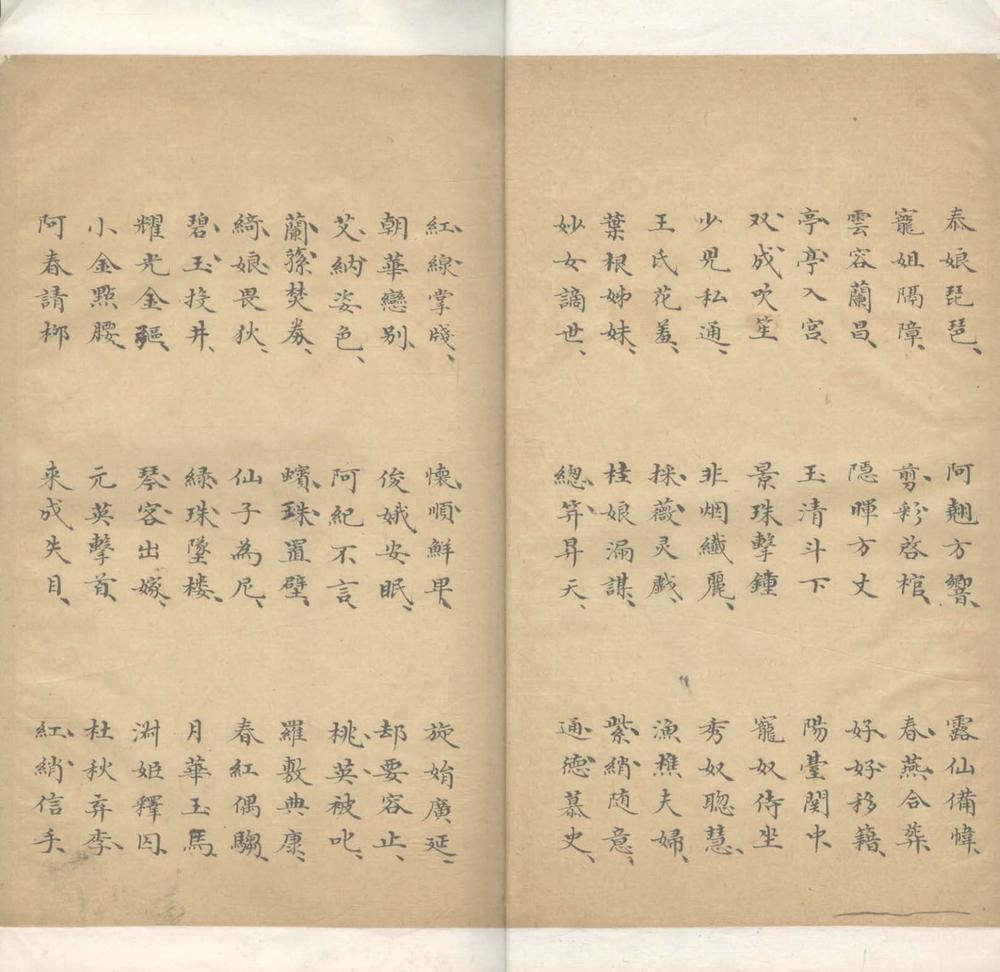 泰娘琵琶、 阿翹方響、 露仙備幃、
寵姐隔障、 剪彩啓棺、 春燕合葬、
雲容蘭昌、 隱暉方丈 好好移籍、
亭亭入宮、 玉清斗下 陽臺関中
双成吹笙 景珠擊鍾 寵奴侍坐
少兒私通、 非烟纖麗、 秀奴聰慧、
王氏花羞、 採薇灵戲、 漁樵夫婦、
葉根姊妹、 桂娘漏謀、 紫綃随意、
妙女謫世、 總笄昇天、 通德慕史、
紅線掌牋、 懷順鮮卑、 旋娟廣延、
朝華戀别、 俊娥安眠、 却要容止、
艾納姿色、 阿紀不言、 桃英被叱、
蘭蓀焚券、 蠙珠置壁、 羅敷典康、
綺娘畏狄、 仙子為尼、 春紅偶騶、
碧玉投井、 綠珠墜楼、 月華玉馬、
耀光金 琴客出嫁、 渊姬釋囚、
小金點腰、 元英擊首、 杜秋弃李、
阿春請梛 来成失目、 紅綃信手、